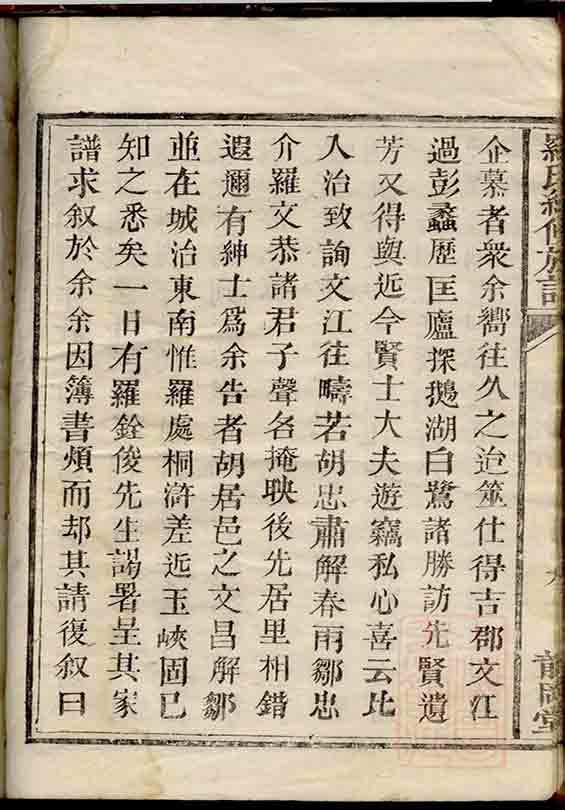 企慕者衆余嚮往久之迨筮仕得吉郡文江
過彭蠡歷匡廬探鵝湖白鷺諸勝訪先賢遺
芳又得與近今賢士大夫遊竊私心喜云比
入治致詢文江往疇若胡忠肅解春雨鄒忠
介羅文恭諸君子聲名掩映後先居里相錯
遐邇有紳士爲余告者胡居邑之文昌解鄒
並在城治東南惟羅處桐滸差近玉峽固已
知之悉矣一日有羅銓俊先生謁署呈其家
譜求叙於余余因簿書煩而却其請復叙曰